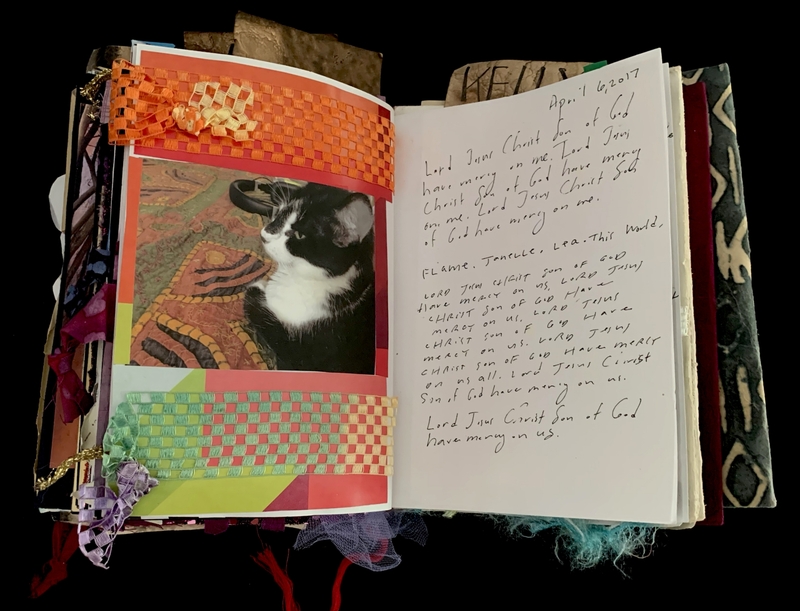 KELLY
April 6, 2017
Lord Jesus Christ Son of God
have mercy on me. Lord Jesus
Christ Son of God have mercy
on me. Lord Jesus Christ Son
of God have mercy on me.
Flame. Janelle. Lea. This World.
LORD JESUS CHRIST SON OF GOD
Have mercy on us. LORD JESUS
CHRIST SON OF GOD HAVE
MERCY ON US. LORD JESUS
CHRIST SON OF GOD HAVE
MERCY ON US. LORD JESUS
CHRIST SON OF GOD HAVE MERCY
ON US ALL. Lord Jesus Christ
Son of God have mercy on us.
Lord Jesus Christ Son of God
have mercy on us.